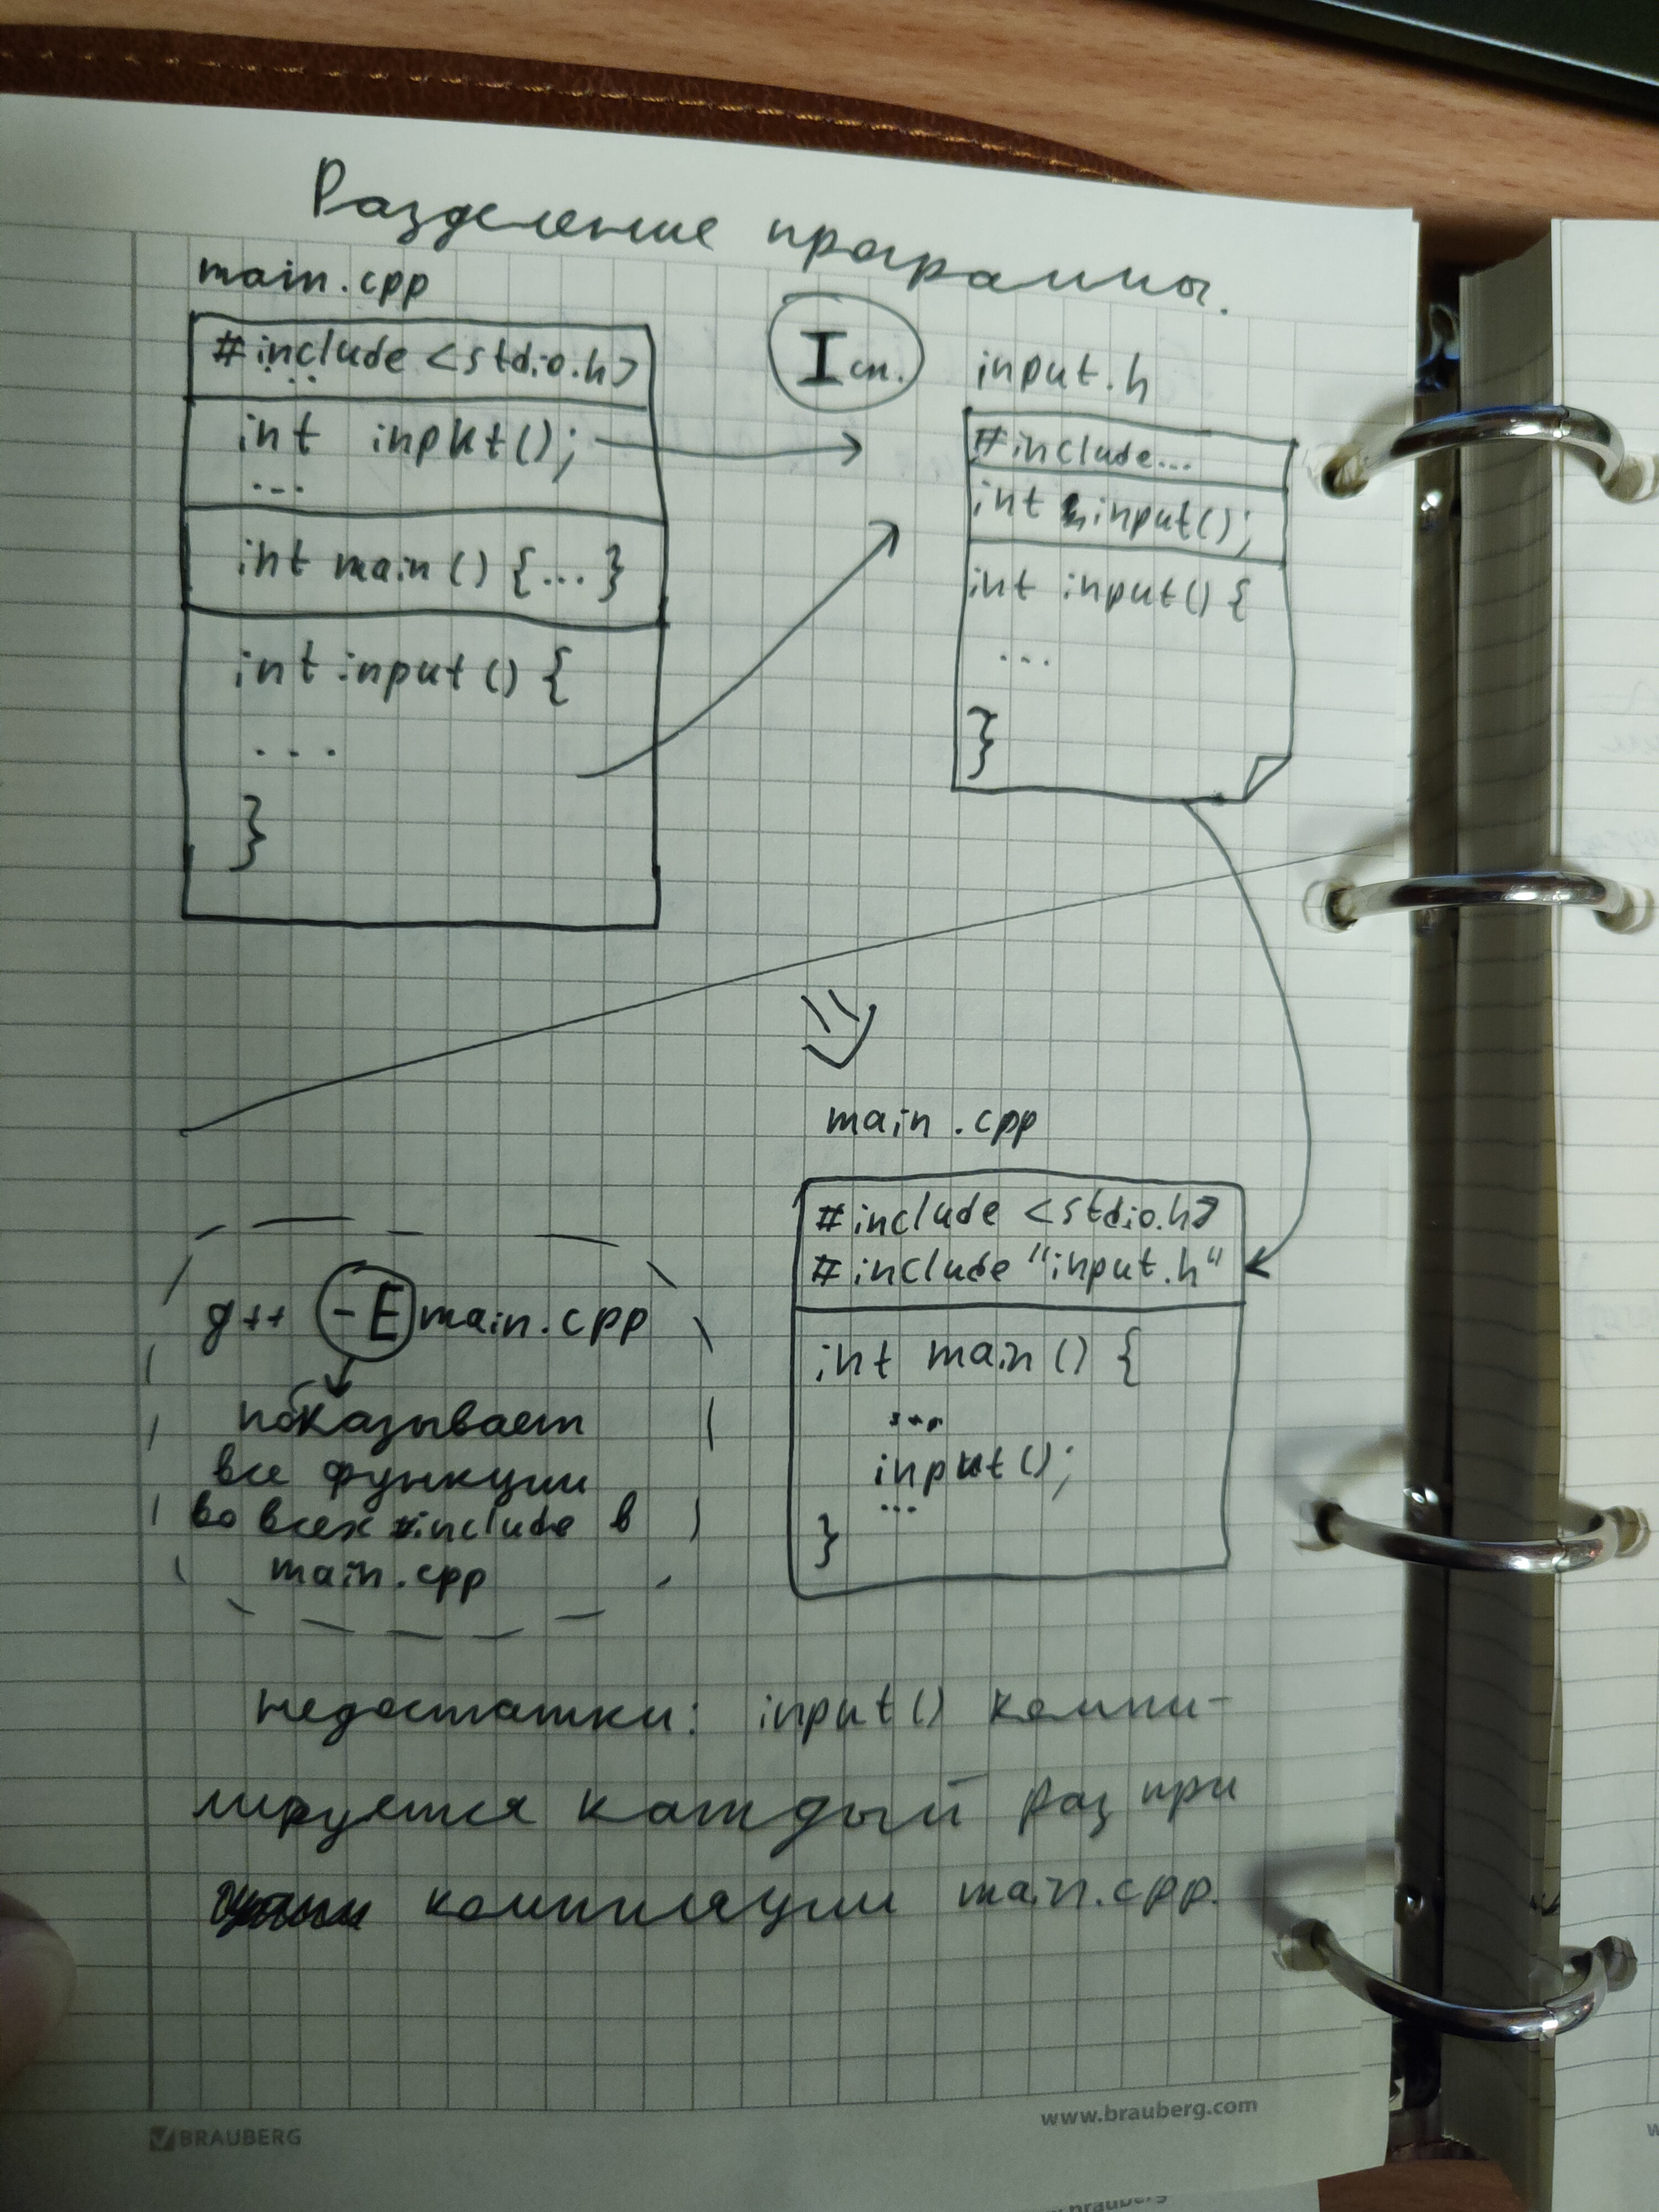 Разделение программы.
main.cpp
#include <stdio.h>
...
int input();
...
int main() {...}
int input() {
...
}
I сп.
input.h
#include...
int input();
int input() {
...
}
main.cpp
#include <stdio.h>
#include "input.h"
int main() {
...
input();
...
}
g++ -E main.cpp
показывает
все функции
во всех #include в
main.cpp
недостатки: input() компи-
лируется каждый раз при
компиляции main.cpp.
BRAUBERG
www.brauberg.com